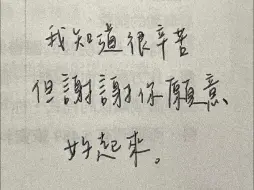 我知道很辛苦
但謝謝你願意
好起來。